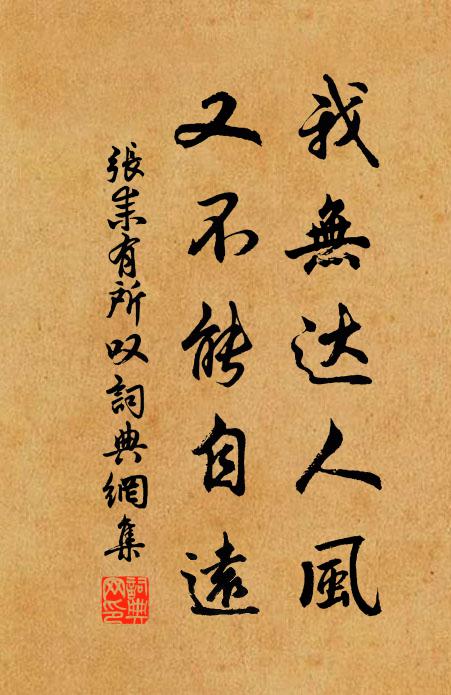 我無达人風
又不能自遠
張耒有所叹詞典網集
詞典
网印